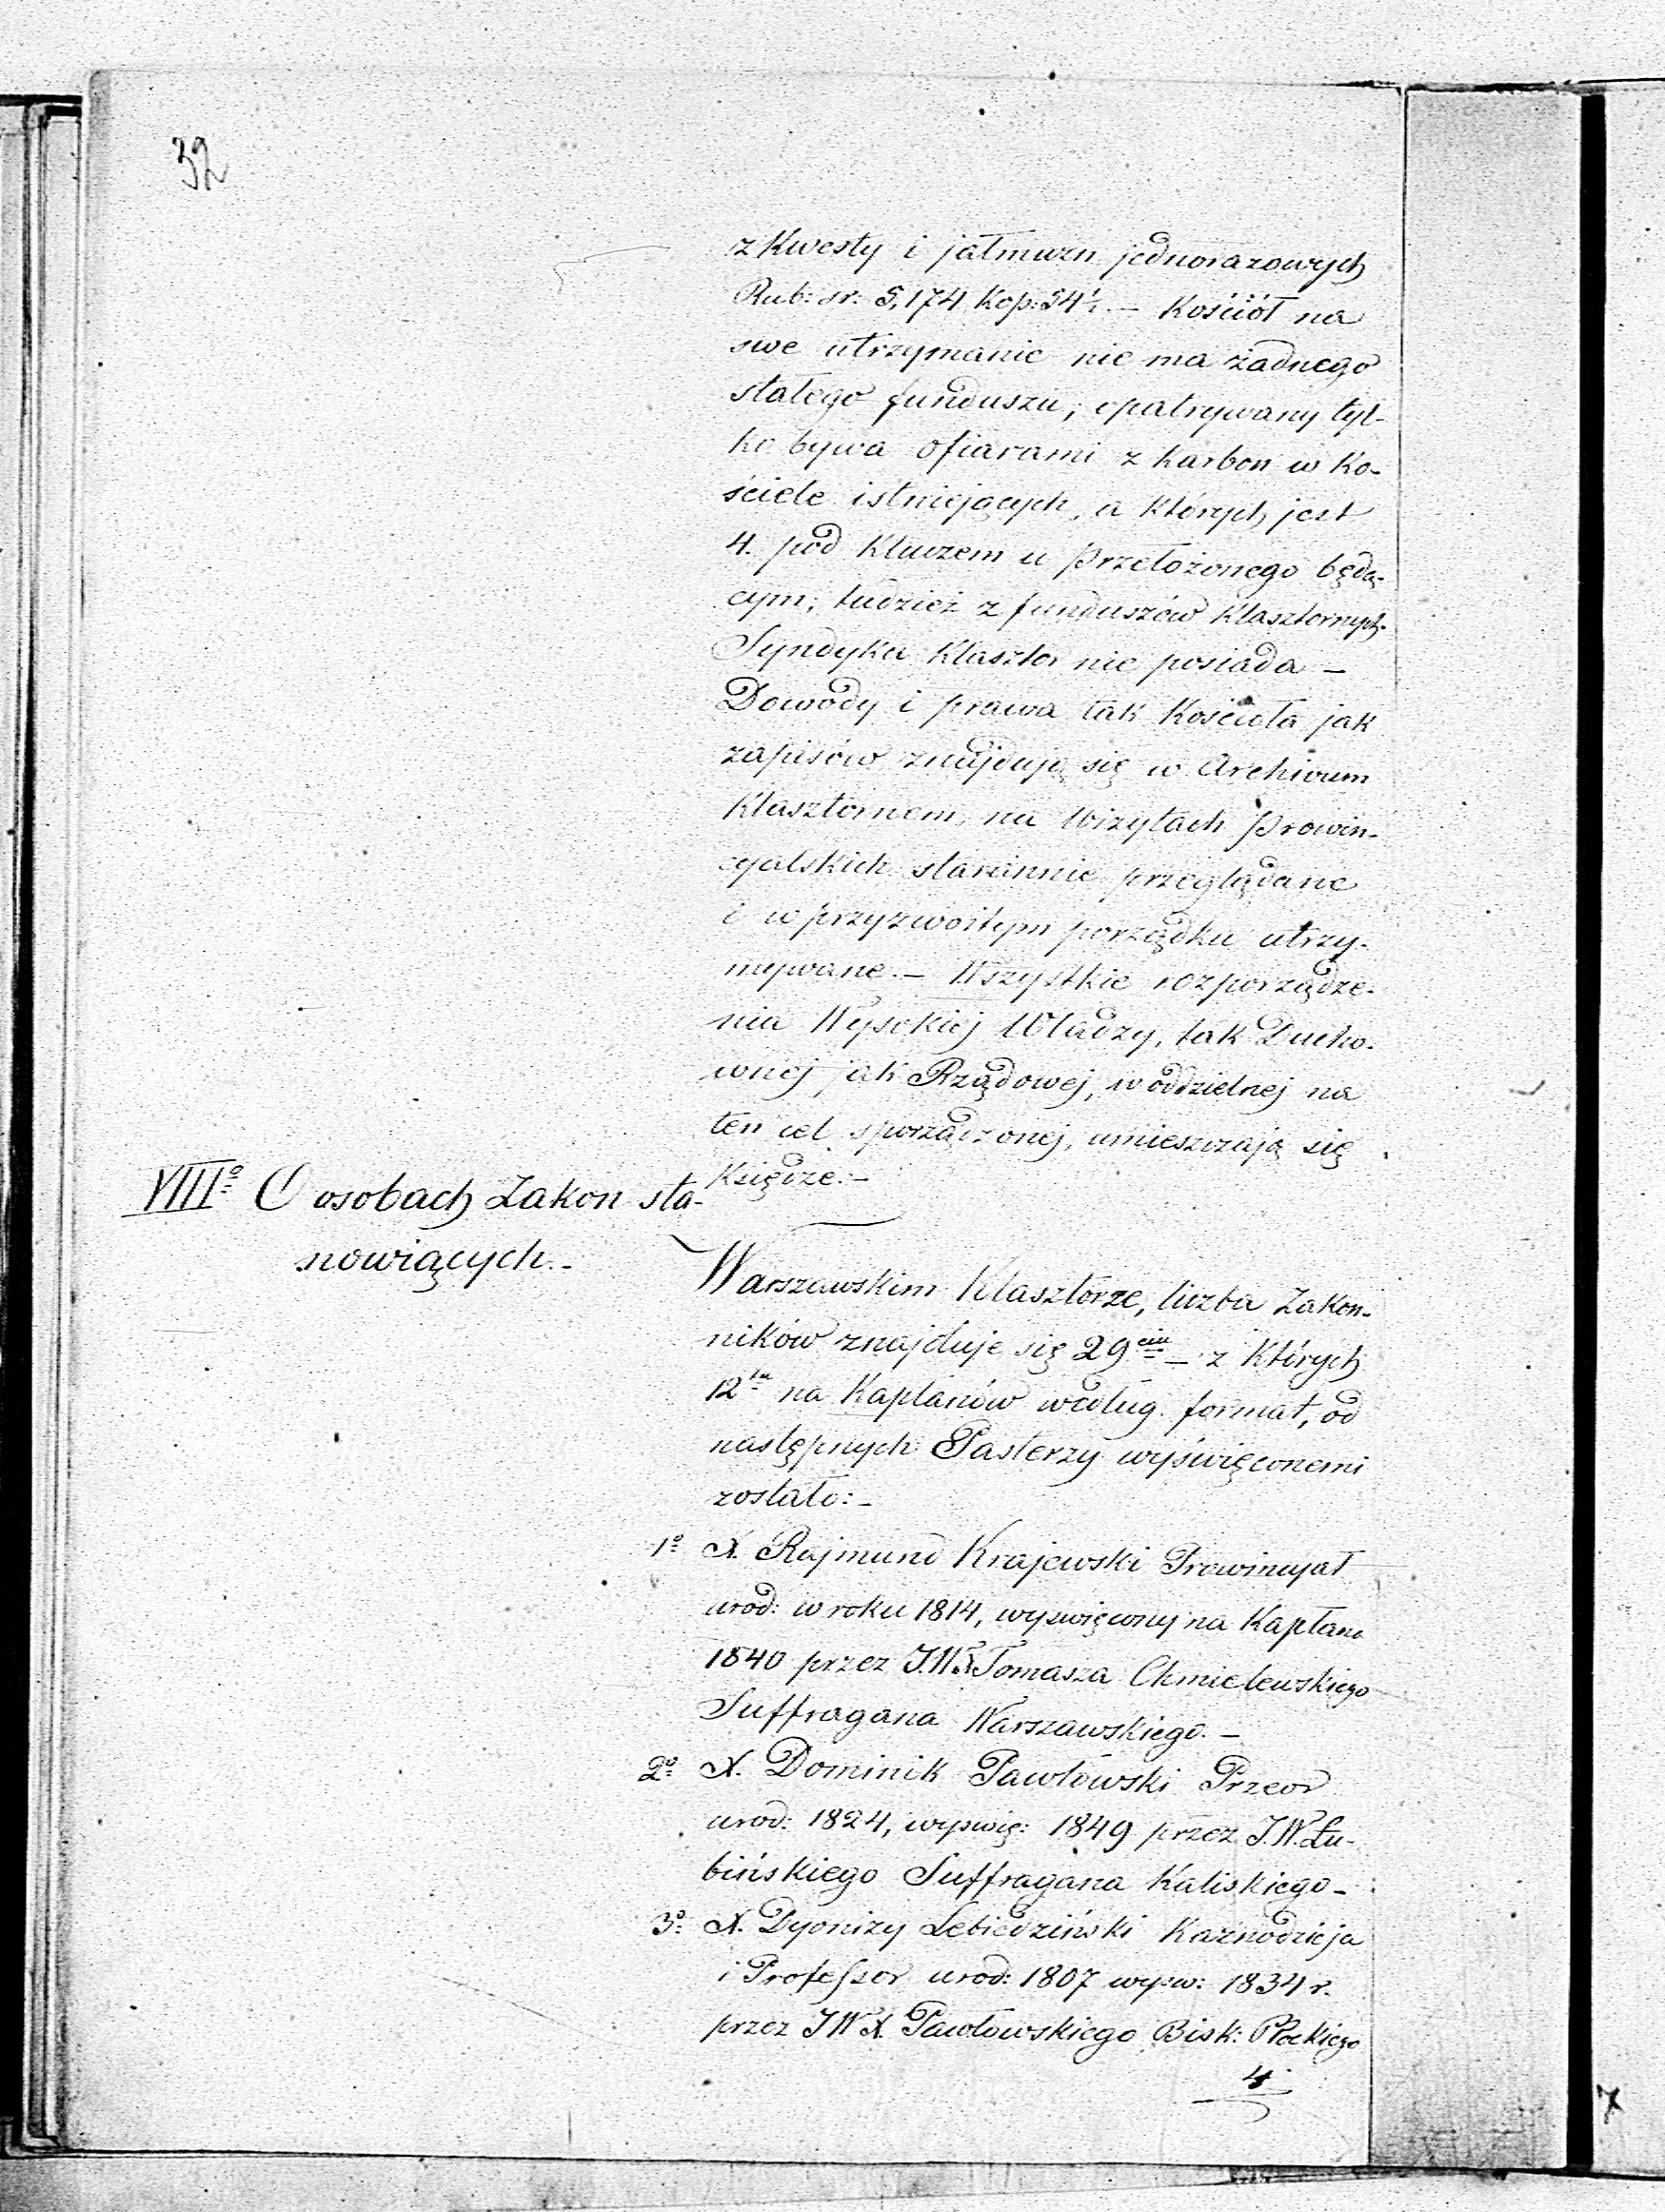 32
z Kwesty i jałmużn jednorazowych
Rub: sr: 5,174 Kop: 54½. – Kościół na
swe utrzymanie nie ma żadnego
stałego funduszu; opatrywany tyl-
ko bywa ofiarami z karbon w Ko-
ściele istniejących, a których jest
4. pod Kluczem u Przełożonego będą-
cym; tudzież z funduszów Klasztornych.
Syndyka Klasztor nie posiada –
Dowody i prawa tak Kościoła jak
zapisów znajdują się w Archivum
Klasztornem, na Wizytach Prowin-
cyalskich starannie przeglądane
i w przyzwoitym porządku utrzy-
mywane. – Wszystkie rozporządze-
nia Wysokiej Władzy, tak Ducho-
wnej jak Rządowej, w oddzielnej na
ten cel sporządzonej, umieszczają się
Księdze. –
VIIIº O osobach Zakon sta-
nowiących. –
Warszawskim Klasztorze, liczba Zakon-
ników znajduje się 29ciu – z których
12tu na Kapłanów według format, od
następnych Pasterzy wyświęconemi
zostało: –
1º X. Rajmund Krajewski Prowincyał
urod: w roku 1814, wyświęcony na Kapłana
1840 przez J.W.X Tomasza Chmielewskiego
Suffragana Warszawskiego. –
2º X. Dominik Pawłowski Przeor
urod: 1824, wyświę: 1849 przez J.W. Łu-
bińskiego Suffragana Kaliskiego –
3º X. Dyonizy Lebiedziński Kaznodzieja
i Professor urod: 1807 wyśw: 1834 r.
przez JWX. Pawłowskiego Bisk: Płockiego
4